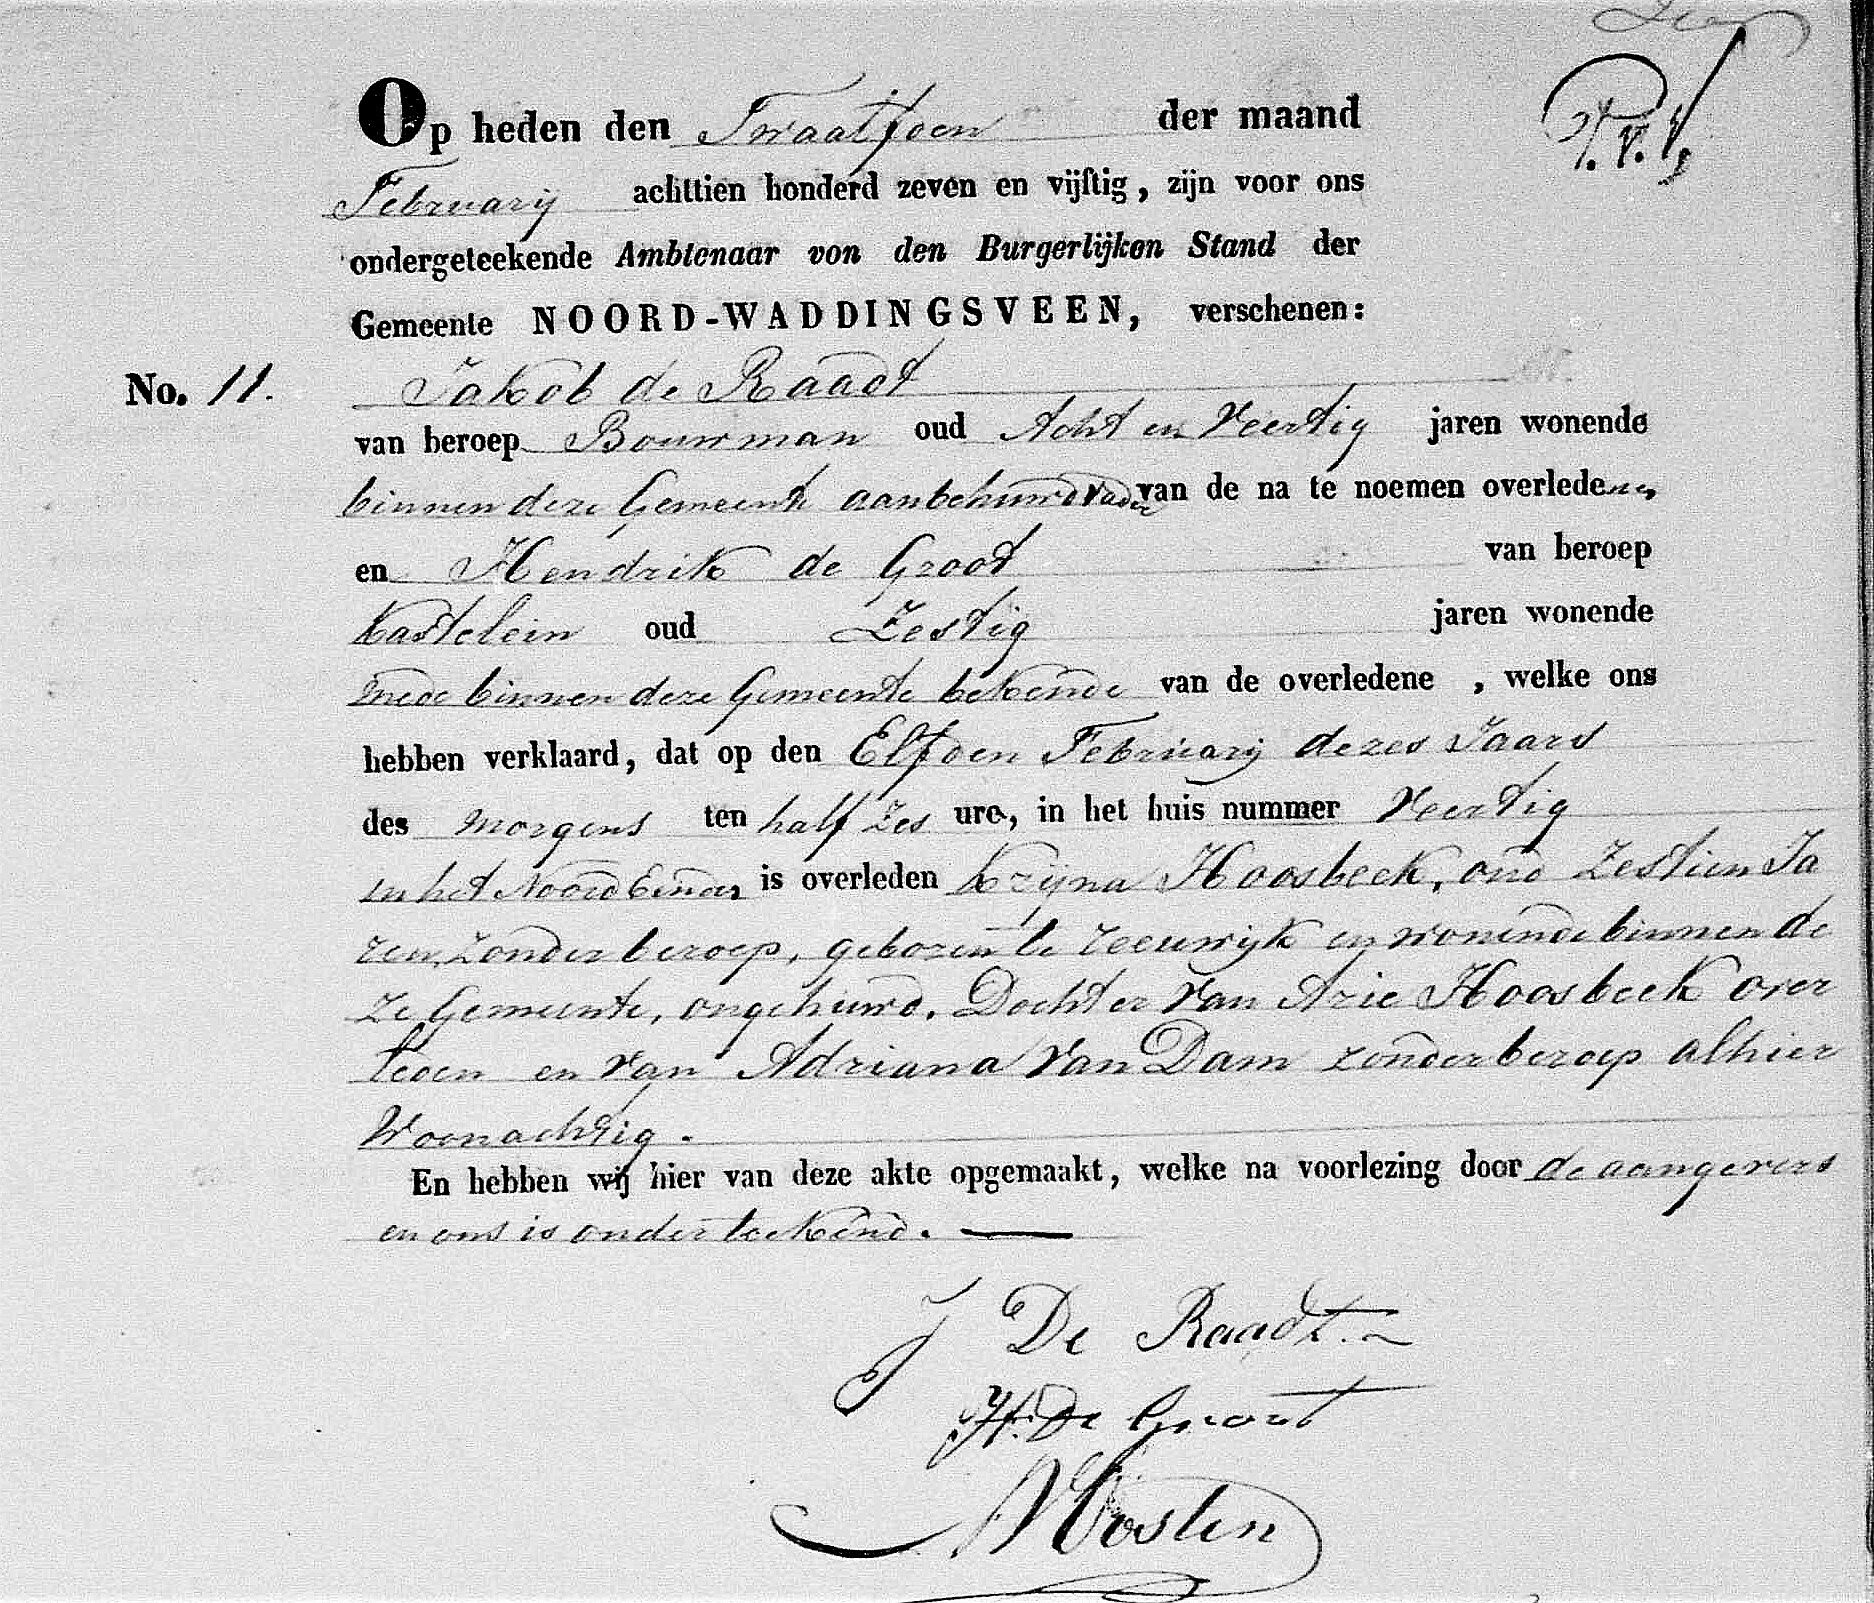 Op heden den Twaalfden der maand
Februarij achttien honderd zeven en vijftig, zijn voor ons
ondergeteekende Ambtenaar von den Burgerlijken Stand der
Gemeente NOORD-WADDINGSVEEN, verschenen:
No. 11. Jakob de Raadt
van beroep Bouwman oud Acht en Veertig jaren wonende
binnen deze Gemeente aanbehuwd Vader van de na te noemen overledene,
en Hendrik de Groot van beroep
Kastelein oud Zestig jaren wonende
mede binnen deze Gemeente bekende van de overledene , welke ons
hebben verklaard, dat op den Elfden Februarij dezes Jaars
des morgens ten half zes ure, in het huis nummer Veertig
in het Noord Einde, is overleden Krijna Hoosbeek, oud Zestien Ja
ren, zonder beroep, geboren te Reeuwijk en wonende binnen de
ze Gemeente, ongehuwd. Dochter van Arie Hoosbeek over
leden en van Adriana van Dam zonder beroep alhier
Woonachtig.
En hebben wij hier van deze akte opgemaakt, welke na voorlezing door de aangevers
en ons is onderteekend.
J De Raadt
H. De Groot